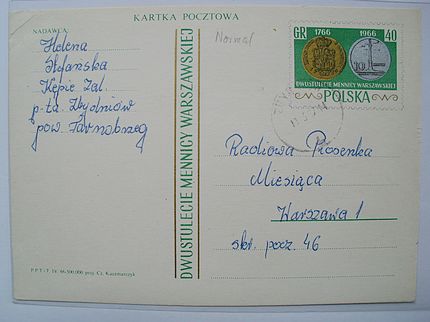 KARTKA POCZTOWA
NADAWCA:
Helena
Stefanska
Kępie Zal.
p-ta Zbydniów
pow Tarnobrzeg
Normal
DWUSTULECIE MENNICY WARSZAWSKIEJ
GR 1766 1966 40
DWUSTULECIE MENNICY WARSZAWSKIEJ
POLSKA
Radiowa Piosenka
Miesiąca
Warszawa 1
skr. pocz. 46
P.P.T.i T. Dr. 66-500.000 proj. Cz. Kaczmarczyk